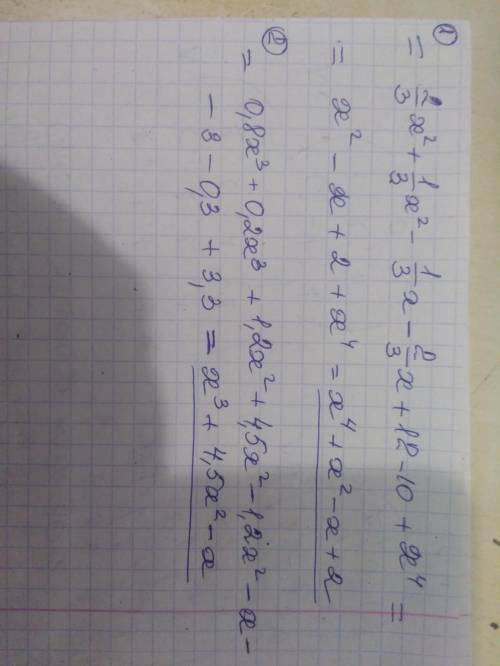 ①
= 2/3 x² + 1/3 x² - 1/3 x - 2/3 x + 12 - 10 + x⁴ =
= x² - x + 2 + x⁴ = x⁴ + x² - x + 2
②
= 0,8x³ + 0,2x³ + 1,2x² + 4,5x² - 1,2x² - x -
- 3 - 0,3 + 3,3 = x³ + 4,5x² - x